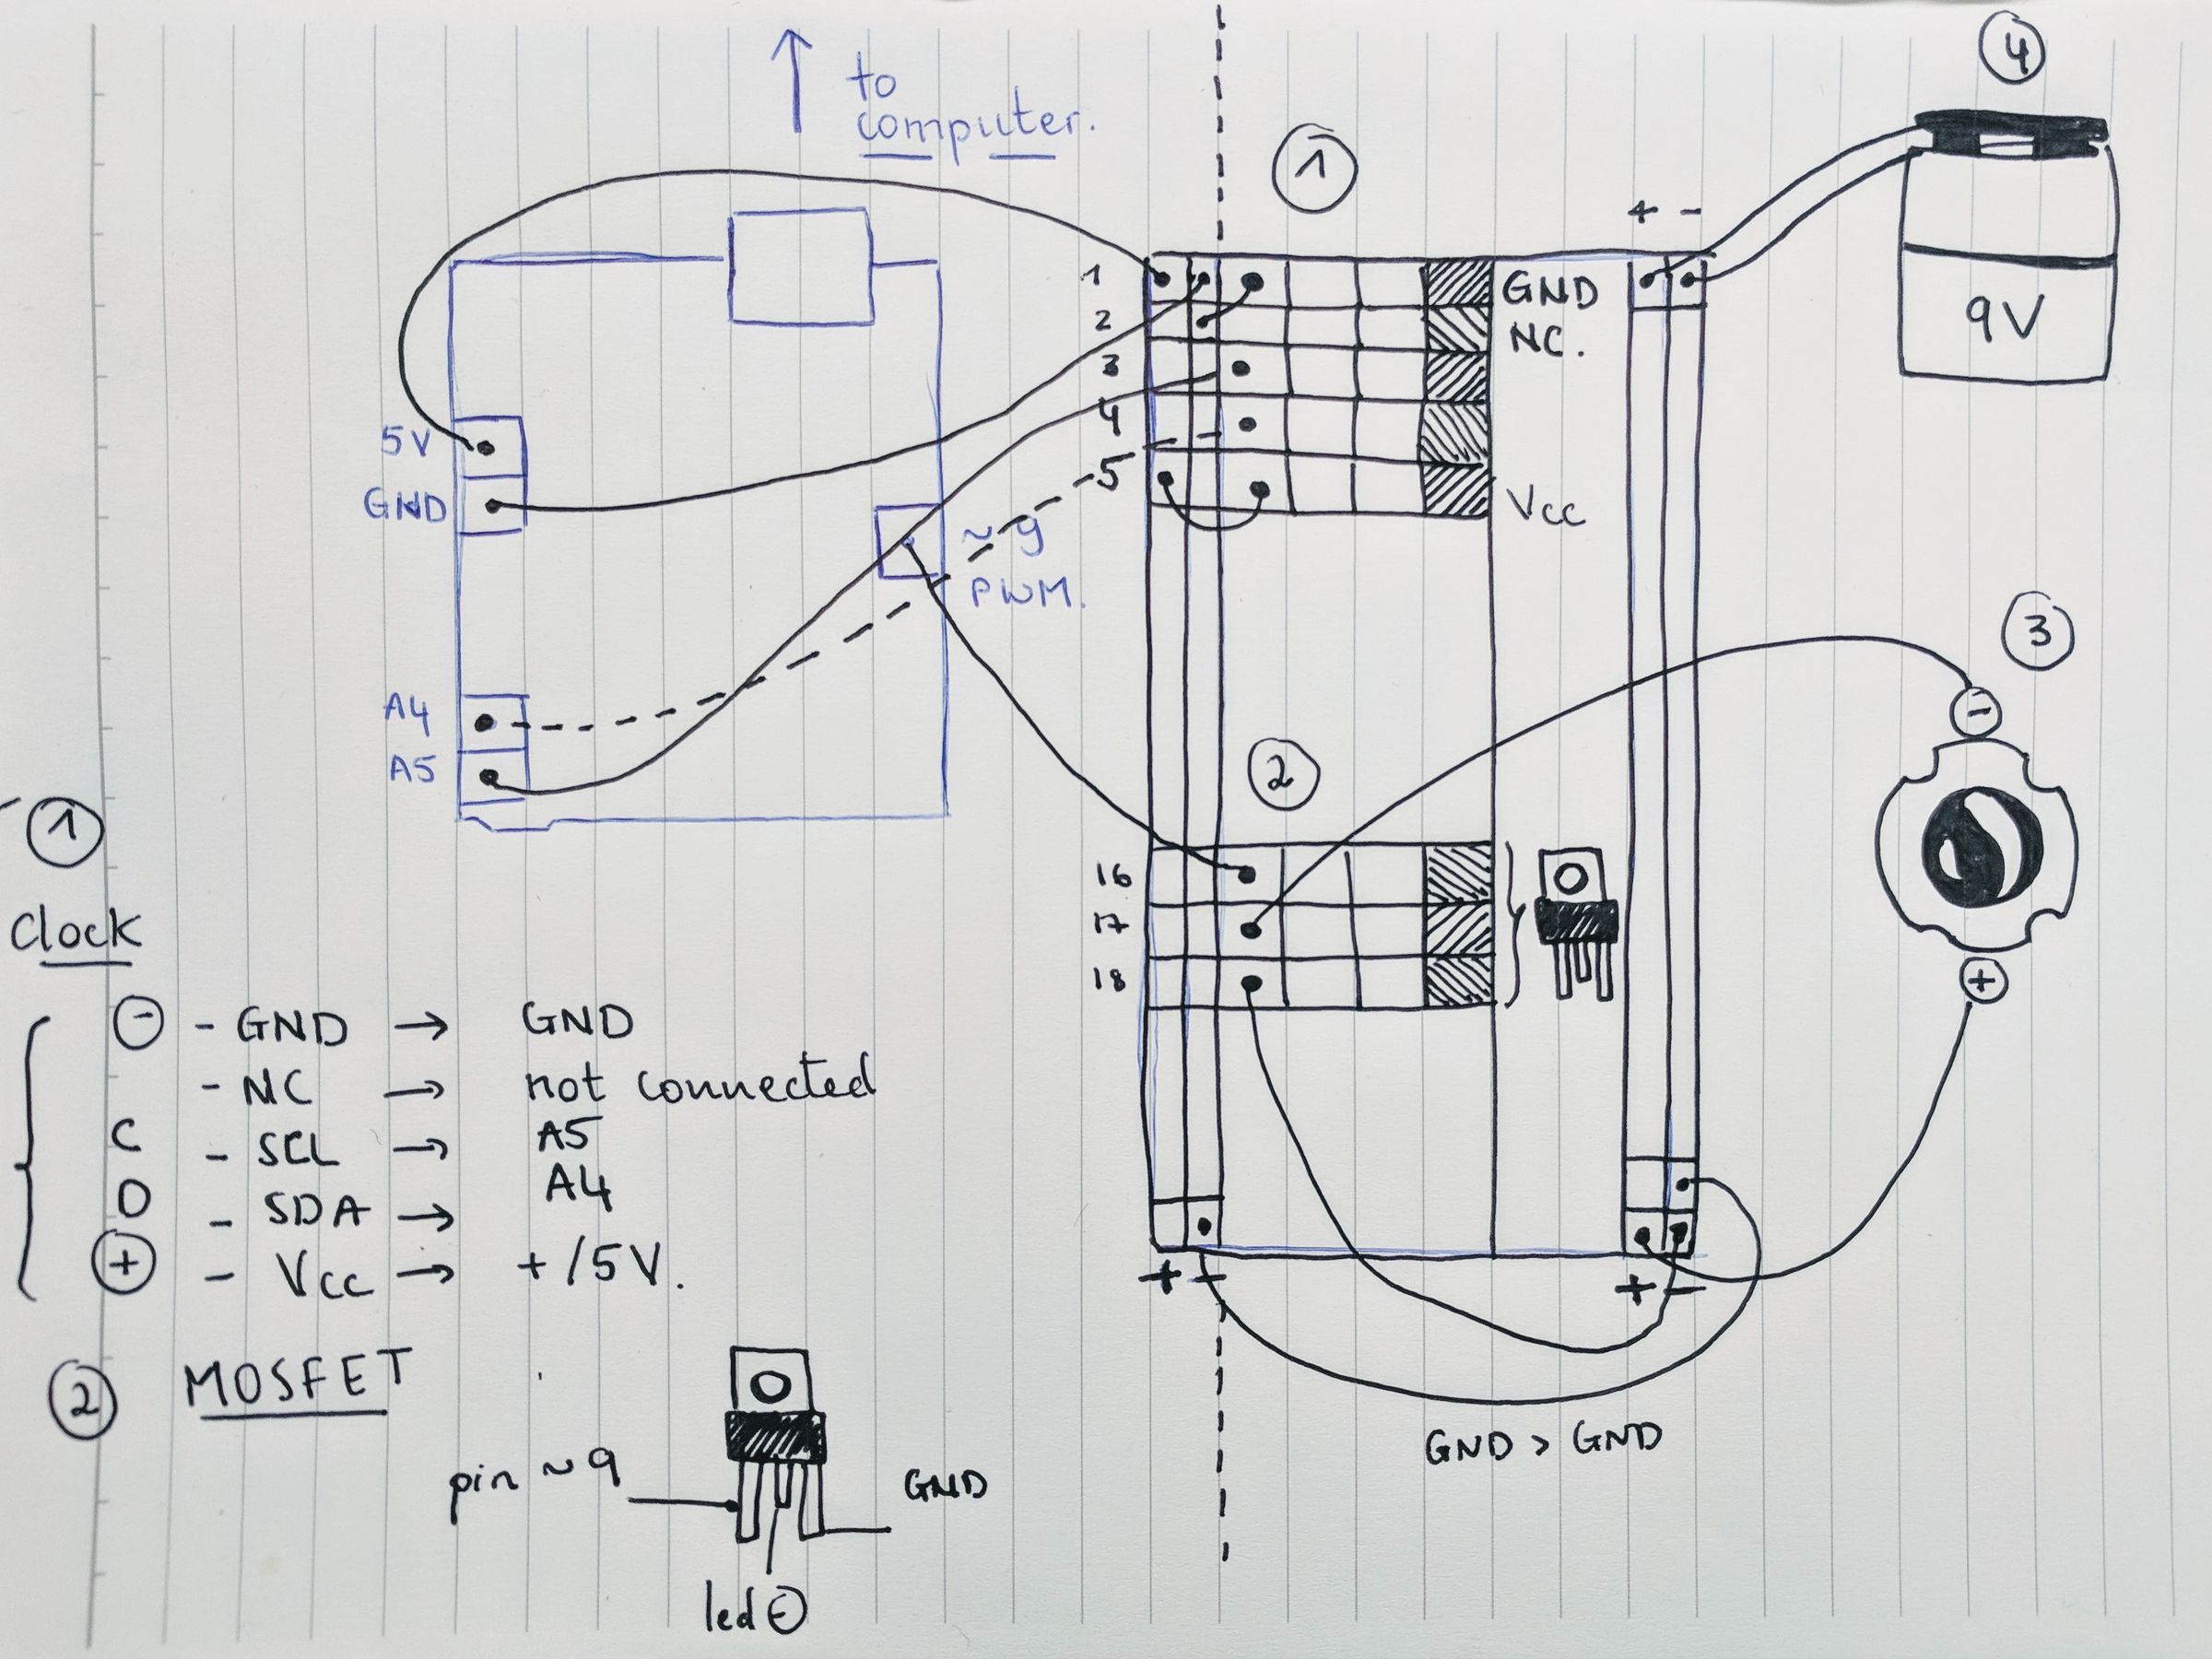 to
computer.
4
1
+ -
9V
1
2
3
4
5
GND
NC.
Vcc
5V
GND
~9
PWM.
A4
A5
3
-
+
2
16
17
18
+ -
+ -
GND > GND
1
Clock
- - GND → GND
- NC → not connected
C - SCL → A5
D - SDA → A4
+ - Vcc → +/5V.
2 MOSFET
pin ~9
GND
led -